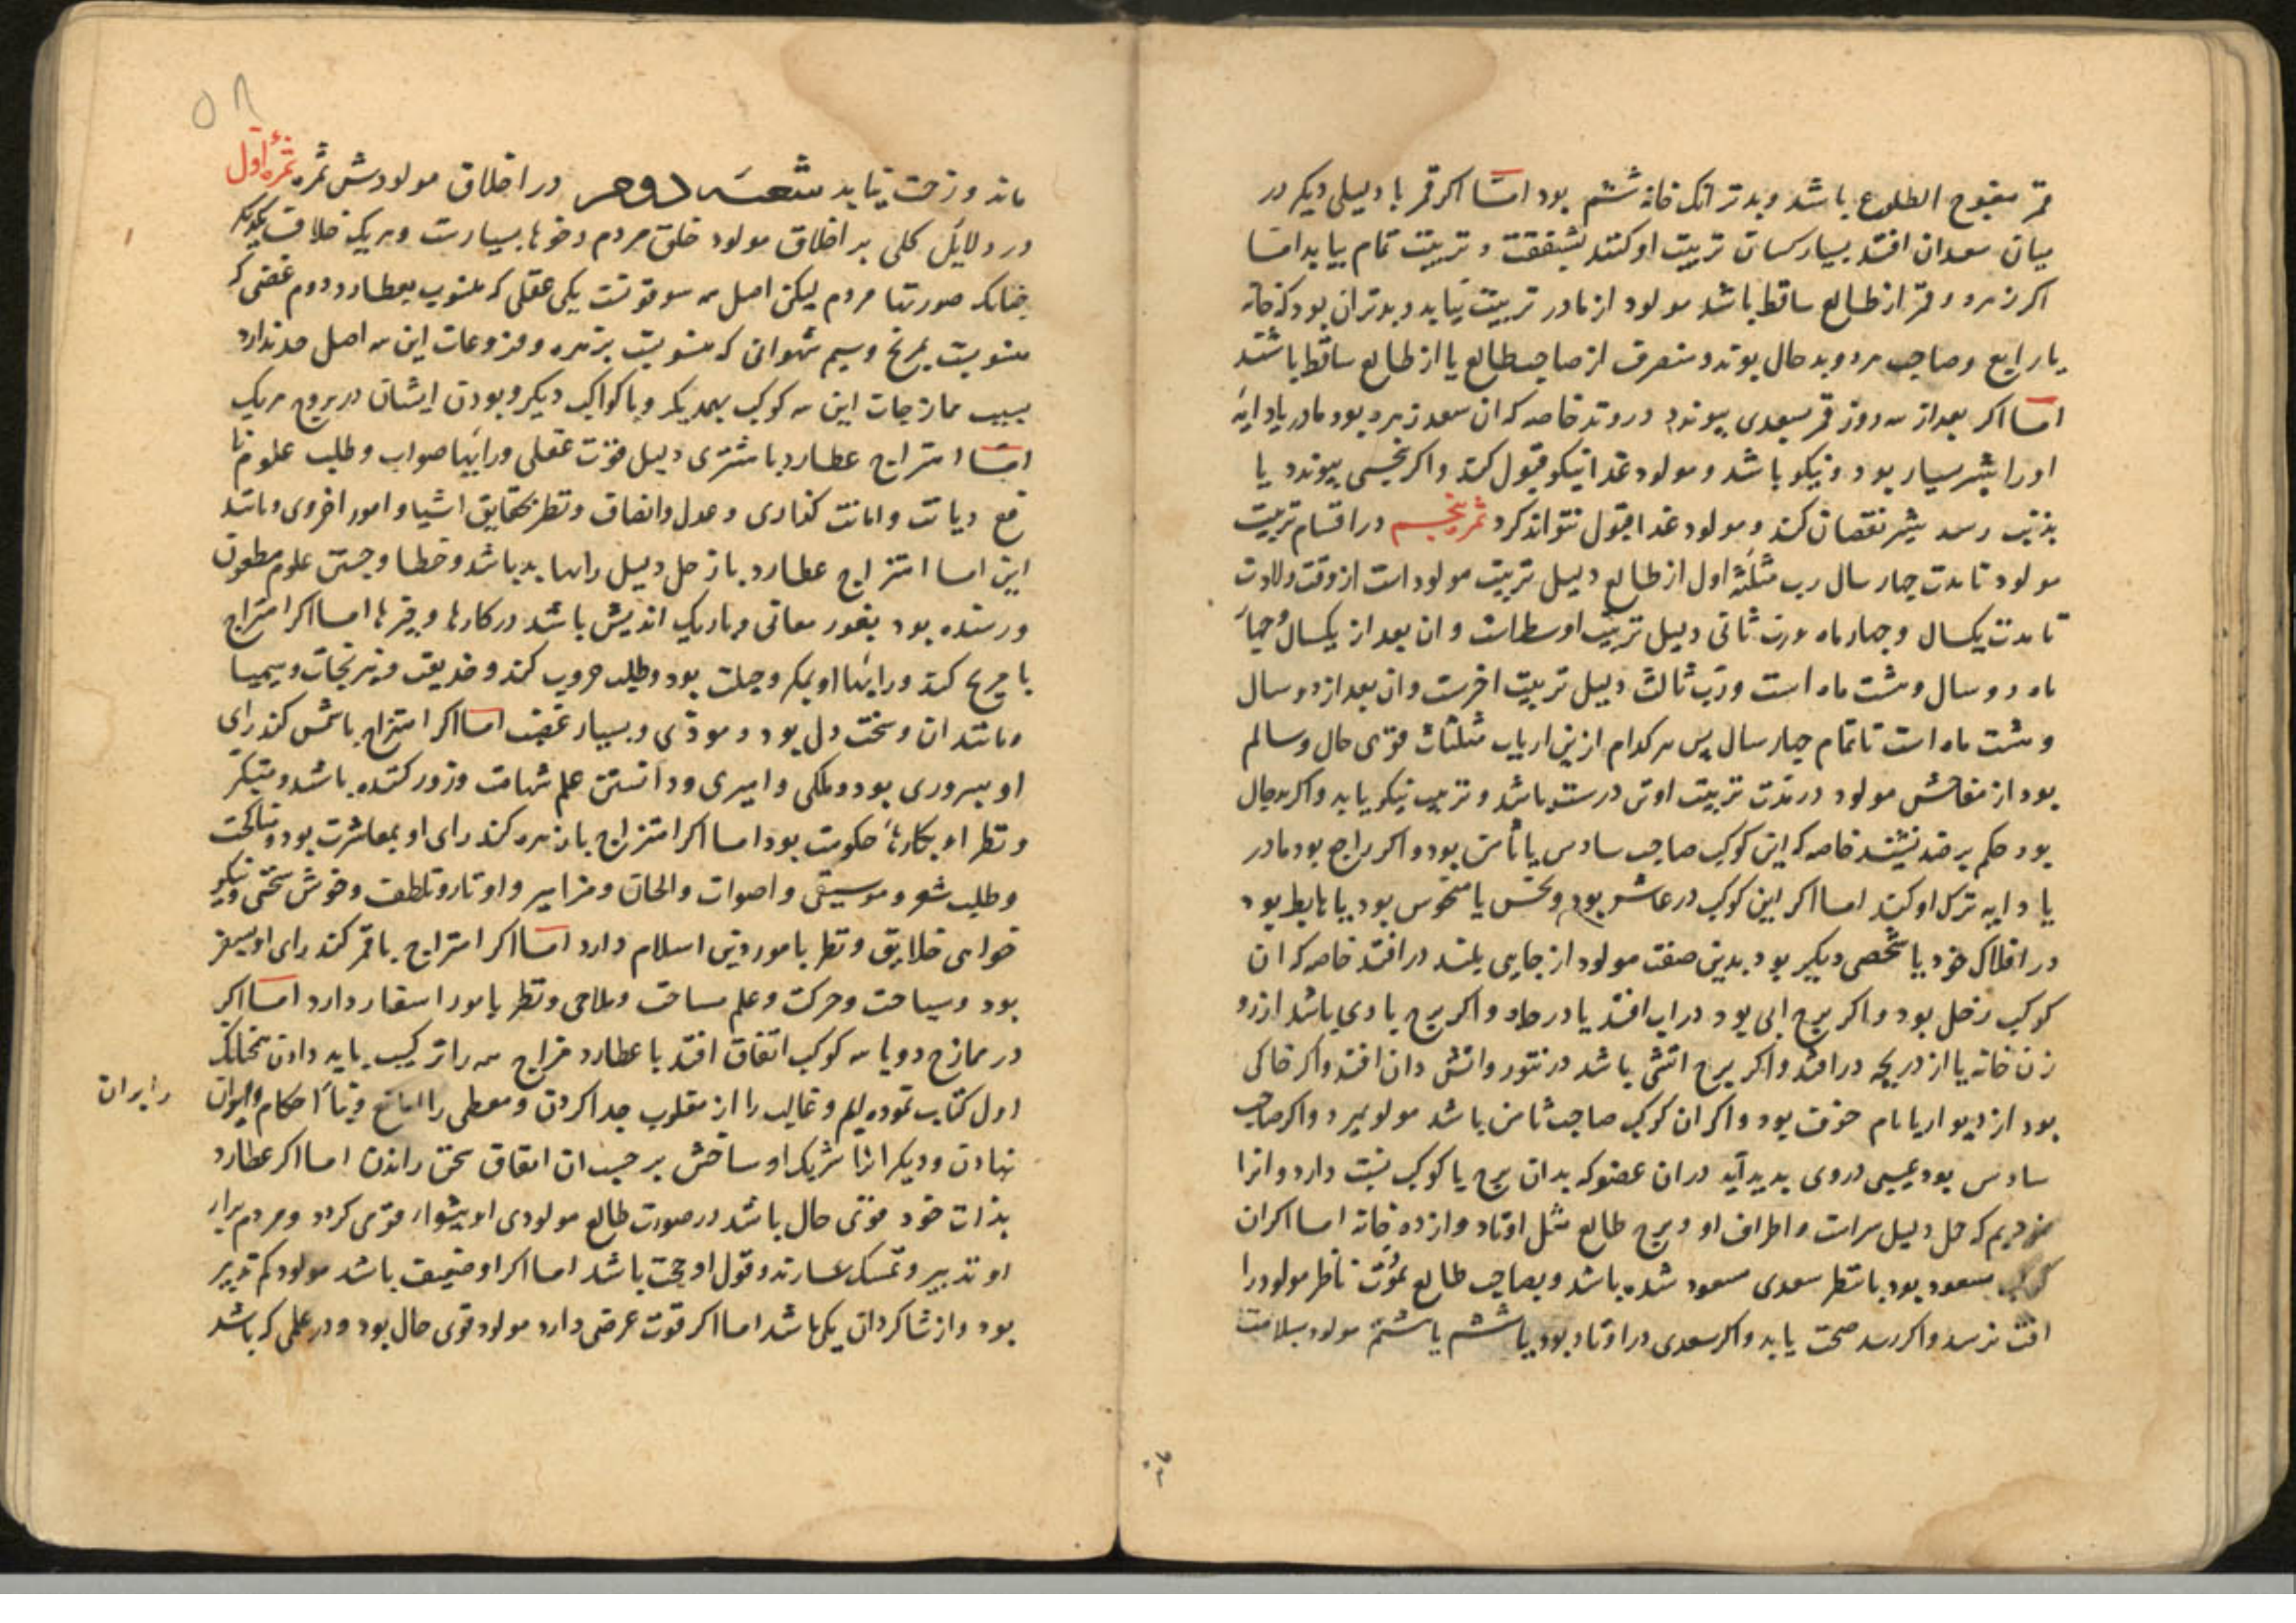 قمر مقبوح الطلوع باشد و بدتر انک خانهٔ ششم بود امّا اکر قمر با دلیلی دیکر در
میان سعدان افتد بسیار کسان تربیت او کنند بشفقت و تربیت تمام بیابد امّا
اکر زهره و قمر از طالع ساقط باشد مولود از مادر تربیت نیابد و بدتر ان بود که خانه
یا رابع و صاحب هر دو بد حال بوند و منصرف از صاحب طالع یا از طالع ساقط باشند
امّا اکر بعد از سه روز قمر بسعدی پیوندد در وتد خاصه که ان سعد زهره بود مادر یا دایه
او را شیر بسیار بود و نیکو باشد و مولود غذا نیکو قبول کند و اکر بنحسی پیوندد یا
بذنب رسد شیر نقصان کند و مولود غذا قبول نتواند کرد ثمرهٔ پنجم در اقسام تربیت
مولود تا مدت چهار سال رب مثلثهٔ اول از طالع دلیل تربیت مولود است از وقت ولادت
تا مدت یکسال و چهار ماه و رب ثانی دلیل تربیت اوسط است و ان بعد از یکسال و چهار
ماه دو سال و هشت ماه است و رب ثالث دلیل تربیت اخرست و ان بعد از دو سال
و هشت ماه است تا تمام چهار سال پس هر کدام ازین ارباب مثلثات قوی حال و سالم
بود از مناحس مولود در مدت تربیت او تن درست باشد و تربیت نیکو یابد و اکر بد حال
بود حکم بر ضد نشیند خاصه که این کوکب صاحب سادس یا ثامن بود و اکر راجع بود مادر
یا دایه ترک او کند امّا اکر این کوکب در عاشر بود و نحس یا منحوس بود یا هابط بود
در افلاک خود یا شخصی دیکر بود بدین صفت مولود از جایی بلند در افتد خاصه که ان
کوکب زحل بود و اکر برج ابی بود در اب افتد یا در چاه و اکر برج بادی باشد از رو
زن خانه یا از دریچه در افتد و اکر برج اتشی باشد در تنور و اتش دان افتد و اکر خاکی
بود از دیوار یا بام خوف بود و اکر ان کوکب صاحب ثامن باشد مولود بمیرد و اکر صاحب
سادس بود عیبی در وی پدید آید در ان عضو که بدان برج یا کوکب نسبت دارد و انرا
که حمل دلیل سرست و اطراف او و برج طالع مثل اوتاد و از ده خانه امّا اکر ان
کوکب مسعود بود یا بنظر سعدی مسعود شده باشد و بصاحب طالع بمودّت ناظر مولود را
افت نرسد و اکر رسد صحت یابد و اکر سعدی در اوتاد بود یا ششم یا هشتم مولود بسلامت
۵۸
ماند و زحمت نیابد شعبهٔ دوم در اخلاق مولود شش ثمره ثمرهٔ اول
در دلایل کلی بر اخلاق مولود خلق مردم و خوها بسیارست و هر یک خلاف یکدیکر
چنانک صورتها مردم لیکن اصل سه قوتست یکی عقلی که منسوب بعطارد دوم غضبی که
منسوبست بمریخ و سیم شهوانی که منسوبست بزهره و فروعات این سه اصل حد ندارد
بسبب ممازجات این سه کوکب بهمدیکر و با کواکب دیکر و بودن ایشان در بروج هر یک
امّا امتزاج عطارد با مشتری دلیل قوت عقلی و رایها صواب و طلب علوم نا
فع دیانت و امانت کذاری و عدل و انصاف و نظر بحقایق اشیا و امور اخروی و مانند
این امّا امتزاج عطارد با زحل دلیل رایها بد باشد و خطا و جستن علوم مطعون
و رسنده بود بغور معانی و باریک اندیش باشد در کارها و چیزها امّا اکر امتزاج
با مریخ کند و رایها او بمکر و حیلت بود و طلب حروب کند و خدیعت و نیرنجات و سیمیا
و مانند ان و سخت دل بود و موذی و بسیار غضب امّا اکر امتزاج باشمس کند رای
او بسروری بود و ملکی و امیری و دانستن علم شهامت و زور کننده باشد و متکبّر
و نظر او بکارهاء حکومت بود امّا اکر امتزاج با زهره کند رای او بمعاشرت بود و مناکحت
و طلب شعر و موسیقی و اصوات و الحان و مزامیر و اوتار و تلطف و خوش سخنی و نیکو
خواهی خلایق و نظر بامور دین اسلام دارد امّا اکر امتزاج با قمر کند رای او بسفر
بود و سیاحت و حرکت و علم مساحت و ملاحی و نظر بامور اسفار دارد امّا اکر
در ممازج دو یا سه کوکب اتفاق افتد با عطارد مزاج همه را ترکیب باید دادن چنانک
اول کتاب نموده‌ایم و غالب را از مغلوب جدا کردن و معطی را از مانع و بناء احکام بر ان
را بر ان
نهادن و دیکر انرا شریک او ساختن بر حسب ان اتفاق سخن راندن امّا اکر عطارد
بذات خود قوی حال باشد در صورت طالع مولودی او پیشوا و قوی کردد و مردم برای
او تدبیر و تمسک سازند و قول او حجت باشد امّا اکر او ضعیف باشد مولود کم تدبیر
بود و از شاکردان یکی باشد امّا اکر قوت عرضی دارد مولود قوی حال بود و در علمی که باشد